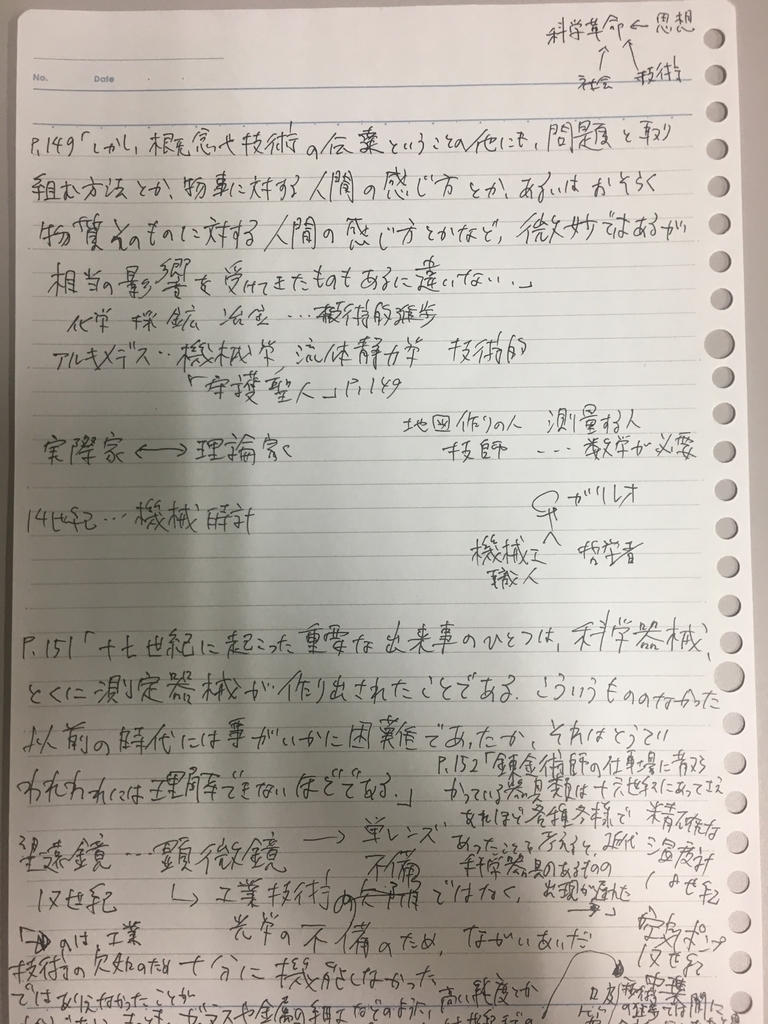 科学革命 ← 思想
社会 技術
No. Date
P.149「しかし、概念や技術の伝業ということの他にも、問題と取り
組む方法とか、物事に対する人間の感じ方とか、あるいはおそらく
物質そのものに対する人間の感じ方とかなど、微妙ではあるが
相当の影響を受けてきたものもあるに違いない。」
化学 採鉱 冶金 … 技術的進歩
アルキメデス‥機械学 流体静力学 技術的
「守護聖人」P.149
地図作りの人 測量する人
実際家 ←→ 理論家
技師 … 数学が必要
14世紀…機械時計
ガリレオ
機械工 哲学者
職人
P.151「十七世紀に起こった重要な出来事のひとつは、科学器械、
とくに測定器械が作り出されたことである。こういうもののなかった
以前の時代には事がいかに困難であったか、それはとうてい
われわれには理解できないほどである。」
P.152「錬金術師の仕事場に
かっている器具類は十六世紀にあってさえ
あれほど各種各様で 精確な
あったことを考えると、近代 温度計
科学器具のあるものの 18世紀
出現が遅れた
望遠鏡 … 顕微鏡 → 単レンズ
不備
17世紀 ↳ 工業技術の ではなく、
光学の不備のため、ながいあいだ
空気ポンプ
17世紀
のは、工業
技術の欠如のため十分に機能しなかった
ではありえなかったことが
ガラスや金属の細工などのように、高い純度とか